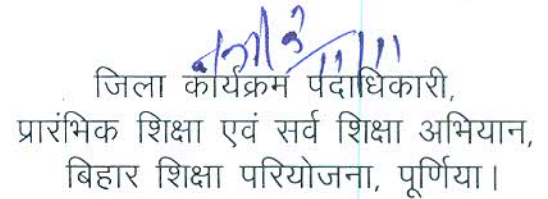 जिला कार्यक्रम पदाधिकारी,
प्रारंभिक शिक्षा एवं सर्व शिक्षा अभियान,
बिहार शिक्षा परियोजना, पूर्णिया।